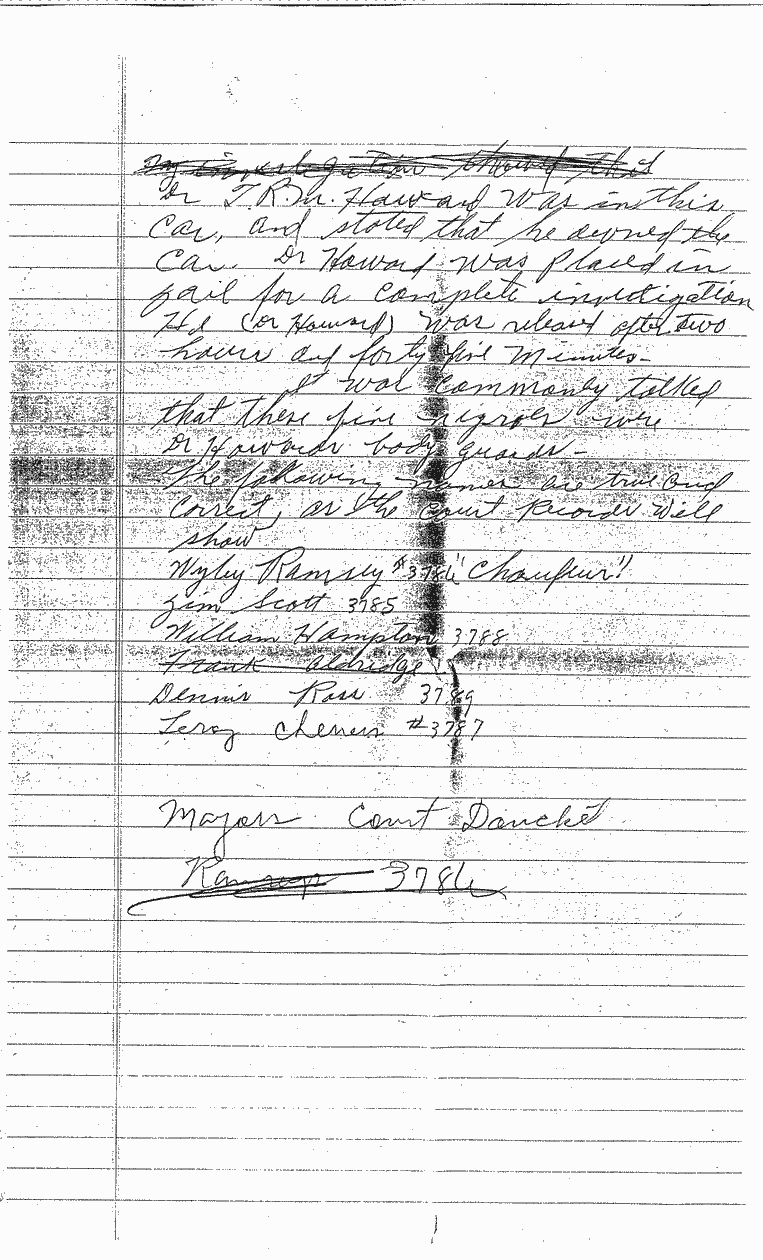 My investigation showed this
Dr T.R.M. Howard was in this
Car, and stated that he owned the
Car. Dr Howard was placed in
jail for a complete investigation
He (Dr Howard) was released after two
hours and forty five minutes-
It was commonly talked
that these five nigroes were
Dr Howards body guards-
The following names are true and
correct, as the Court Records will
show
Wyley Ramsey #3786 "Chaufeur"
Jim Scott 3785
William Hampton 3788
Frank Aldridge
Dennis Ross 3789
Leroy #3787
Mayors Court Docket
Ramsey 3786